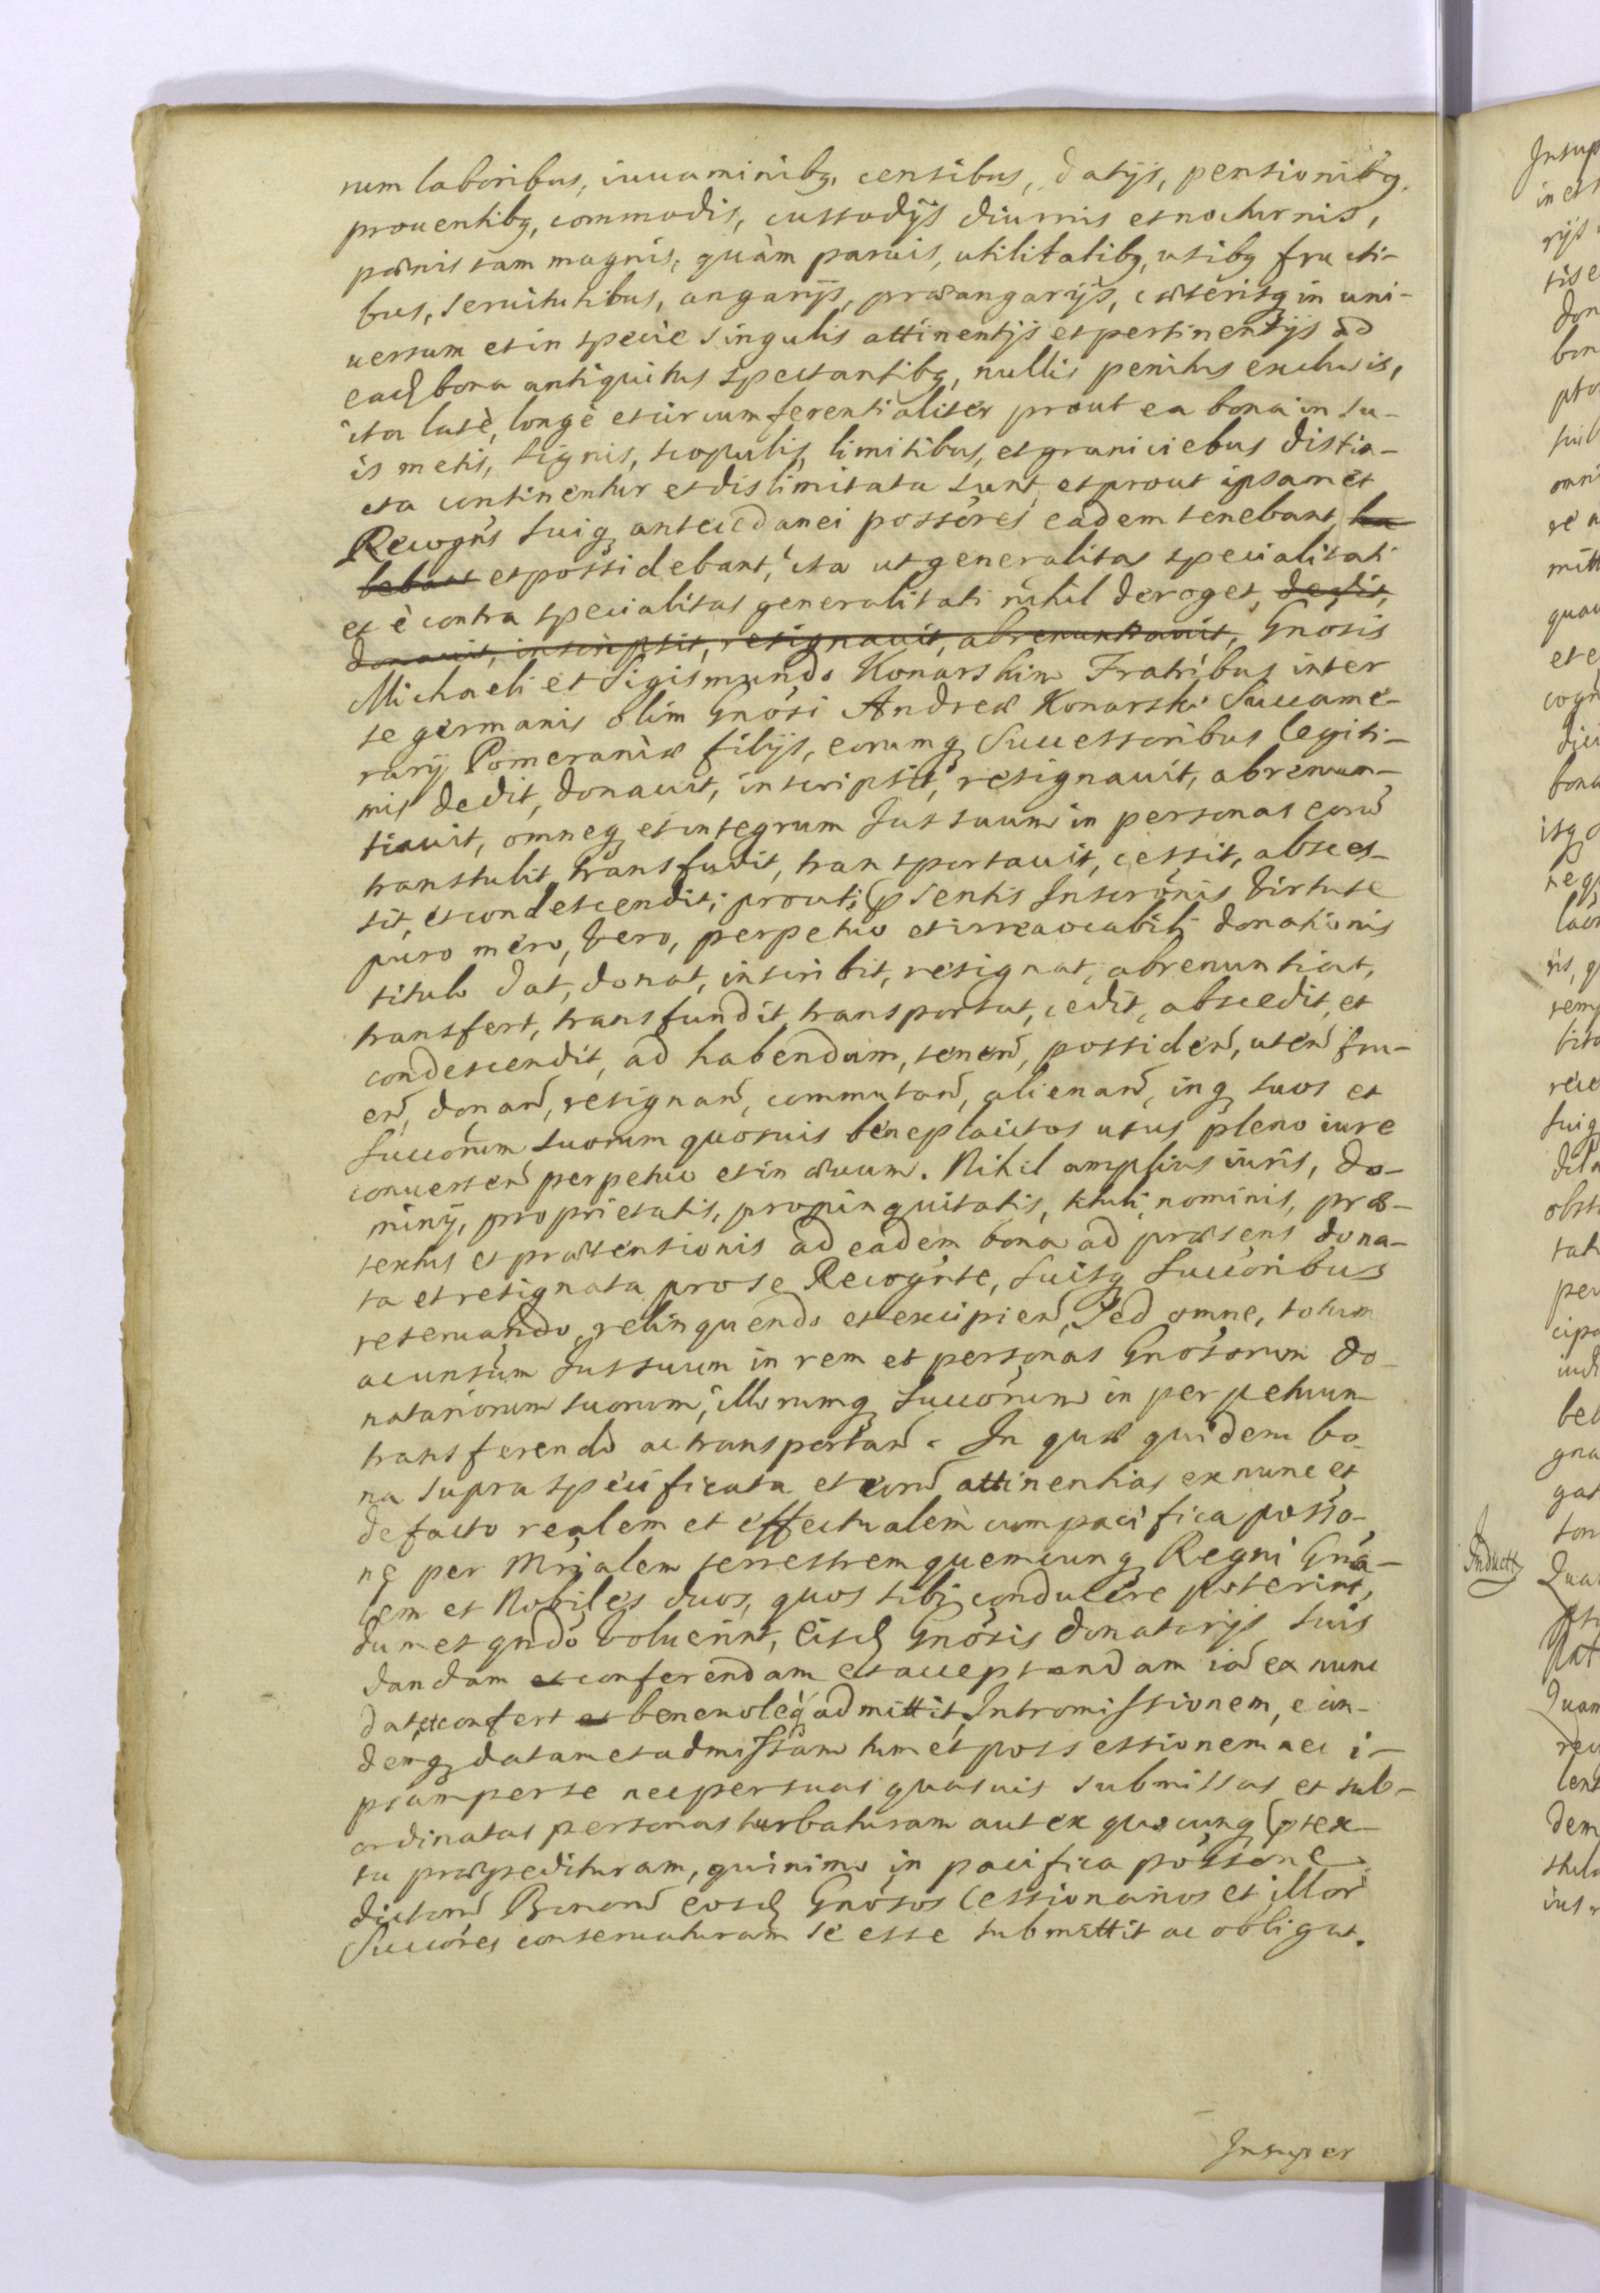 rum laboribus, iuuaminibq, censibus, datijs, pensionibq,
prouentibq, commodis, custodijs diurnis et nocturnis,
pænis tam magnis, quàm paruis, utilitatibq, usibq fructi-
bus, seruitutibus, angarijs, præangarijs, cæterisq in uni-
uersum et in specie singulis attinentijs et pertinentijs ad
ead bona antiquitus spectantibq, nullis penitus exclusis,
ita latè, longè et circumferentialiter prout ea bona in su-
is metis, signis, scopulis, limitibus, et graniciebus distin-
cta continentur et dislimitata sunt et prout ipsamet
Recogns suiq antecedanei possores eadem tenebant, ha
bebant et possidebant, ita ut generalitas specialitati
et è contra specialitas generalitati nihil deroget, dedit,
donauit, inscripsit, resignauit, abrenuntiauit, Gnosis
Michaeli et Sigismundo Konarskim Fratribus inter
se germanis olim Gnosi Andreæ Konarski Succame-
rarij Pomeraniæ filijs, eorumq Successoribus legiti-
mis dedit, donauit, inscripsit, resignauit, abrenun-
tiauit, omneq et integrum Jus suum in personas eorū
transtulit, transfudit, transportauit, cessit, absces-
sit, et condescendit; prout psentis Inscronis Virtute
puro mero, vero, perpetuo et irreuocabili donationis
titulo dat, donat, inscribit, resignat, abrenuntiat,
transfert, transfundit, transportat, cedit, abscedit, et
condescendit, ad habendum, tenen, possiden, uten fru-
en, donan, resignan, commutan, alienan, inq suos et
Succorum suorum quosuis beneplacitos usus pleno iure
conuerten perpetuo et in æuum. Nihil amplius iuris, do-
minij, proprietatis, propinquitatis, tituli, nominis, præ-
textus et prætensionis ad eadem bona ad præsens dona-
ta et resignata pro se Recognte, suisq Succoribus
reseruando, relinquendo et excipien, Sed omne, totum
ac unsum Jus suum in rem et personas Gnosorum do-
natariorum suorum, illorumq Succorum in perpetuum
transferendo ac transportan. In quæ quidem bo-
na supra specificata et eorū attinentias ex nunc et
de facto realem et effectualem cum pacifica posso-
ne per Mrjalem terrestrem quemcunq Regni Gna-
lem et Nobiles duos, quos sibi conducere poterint,
dum et qndo voluerint, eisd Gnosis donatarijs suis
dandam et conferendam et acceptandam iad ex nunc
dat, et confert et beneuoleq admittit Intromissionem, eun-
demq datam et admissam tum et possessionem nec i-
psam per se nec per suas quasuis submissas et sub-
ordinatas personas turbaturam aut ex quocunq ptex-
tu præpedituram, quinimo in pacifica possone
dictorū Bonorū eosd Gnosos Cessionarios et illor
Succores conseruaturam se esse submittit ac obligat.
Insuper
Induct